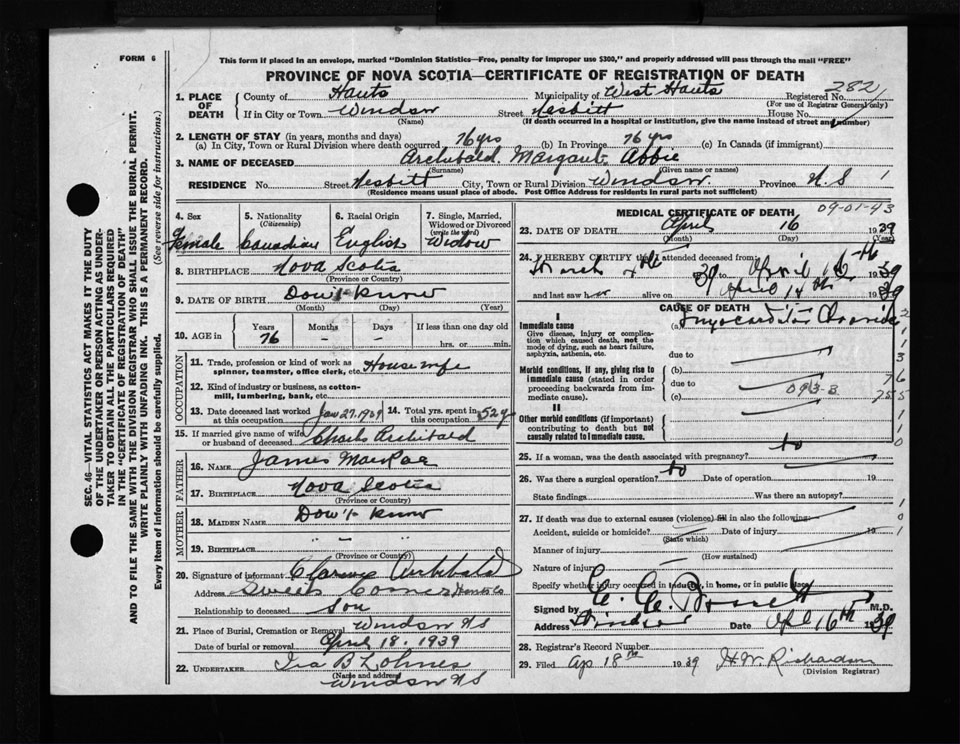 FORM 6
This form if placed in an envelope, marked "Dominion Statistics—Free, penalty for improper use $300," and properly addressed will pass through the mail "FREE"
PROVINCE OF NOVA SCOTIA—CERTIFICATE OF REGISTRATION OF DEATH
282
1. PLACE OF DEATH
County of Hants Municipality of West Hants Registered No.
(For use of Registrar General only)
If in City or Town Windsor Street Nesbitt House No.
(Name) (If death occurred in a hospital or institution, give the name instead of street and number)
2. LENGTH OF STAY (in years, months and days)
(a) In City, Town or Rural Division where death occurred 76 yrs (b) In Province 76 yrs (c) In Canada (if immigrant)
3. NAME OF DECEASED Archibald Margaret Abbie
(Surname) (Given name or names)
RESIDENCE No. Street Nesbitt City, Town or Rural Division Windsor Province N.S 1
(Residence means usual place of abode. Post Office Address for residents in rural parts not sufficient)
4. Sex Female
5. Nationality (Citizenship) Canadian
6. Racial Origin English
7. Single, Married, Widowed or Divorced (write the word) Widow
8. BIRTHPLACE Nova Scotia
(Province or Country)
9. DATE OF BIRTH Don't know
(Month) (Day) (Year)
10. AGE in Years 76 Months – Days – If less than one day old
hrs. or min.
OCCUPATION
11. Trade, profession or kind of work as spinner, teamster, office clerk, etc. Housewife
12. Kind of industry or business, as cotton-mill, lumbering, bank, etc.
13. Date deceased last worked at this occupation Jan 27, 1939 14. Total yrs. spent in this occupation 52 y
15. If married give name of wife or husband of deceased Charles Archibald
FATHER
16. NAME James MacRae
17. BIRTHPLACE Nova Scotia
(Province or Country)
MOTHER
18. MAIDEN NAME Don't know
19. BIRTHPLACE " – "
(Province or Country)
20. Signature of informant Clarence Archibald
Address Sweets Corner Hants Co
Relationship to deceased Son
21. Place of Burial, Cremation or Removal Windsor NS
Date of burial or removal April 18, 1939
22. UNDERTAKER Ira B Lohnes
(Name and address)
Windsor NS
MEDICAL CERTIFICATE OF DEATH 09-01-93
23. DATE OF DEATH April 16 1939
(Month) (Day) (Year)
24. I HEREBY CERTIFY that I attended deceased from:
March 4th 39 to April 16th 1939
and last saw her alive on April 14th 1939
CAUSE OF DEATH
I
Immediate cause
Give disease, injury or complication which caused death, not the mode of dying, such as heart failure, asphyxia, asthenia, etc.
(a) Myocarditis Chronic
due to
Morbid conditions, if any, giving rise to immediate cause (stated in order proceeding backwards from immediate cause).
(b)
due to
093-3
(c)
II
Other morbid conditions (if important) contributing to death but not causally related to immediate cause.
25. If a woman, was the death associated with pregnancy?
26. Was there a surgical operation? Date of operation 19
State findings Was there an autopsy?
27. If death was due to external causes (violence) fill in also the following:
Accident, suicide or homicide? Date of injury 19
(State which)
Manner of injury
(How sustained)
Nature of injury
Specify whether injury occurred in industry, in home, or in public place
Signed by M.D.
Address Windsor Date Apl 16th 1939
28. Registrar's Record Number
29. Filed Ap 18th 1939 H.W. Richardson
(Division Registrar)
SEC. 46— VITAL STATISTICS ACT MAKES IT THE DUTY
OF THE UNDERTAKER OR PERSON ACTING AS UNDER-
TAKER TO OBTAIN ALL THE PARTICULARS REQUIRED
IN THE "CERTIFICATE OF REGISTRATION OF DEATH"
AND TO FILE THE SAME WITH THE DIVISION REGISTRAR WHO SHALL ISSUE THE BURIAL PERMIT.
WRITE PLAINLY WITH UNFADING INK. THIS IS A PERMANENT RECORD.
Every item of information should be carefully supplied. (See reverse side for instructions.)